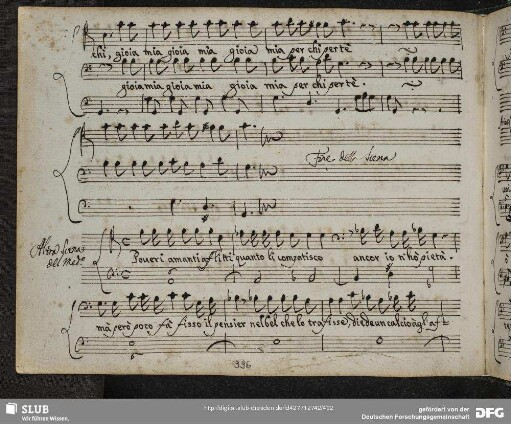 chi, gioia mia gioia mia gioia mia per chi per te
gioia mia gioia mia gioia mia per chi per te.
Fine della Scena
Altra Scena
del Med.º
Poveri amanti afflitti quanto li compatisco ancor io n'hò pietà.
mà però poco fà fisso il pensier nel bel che lo trafisse, diede un calcio
336
SLUB
Wir führen Wissen.
gefördert von der
Deutschen Forschungsgemeinschaft
DFG